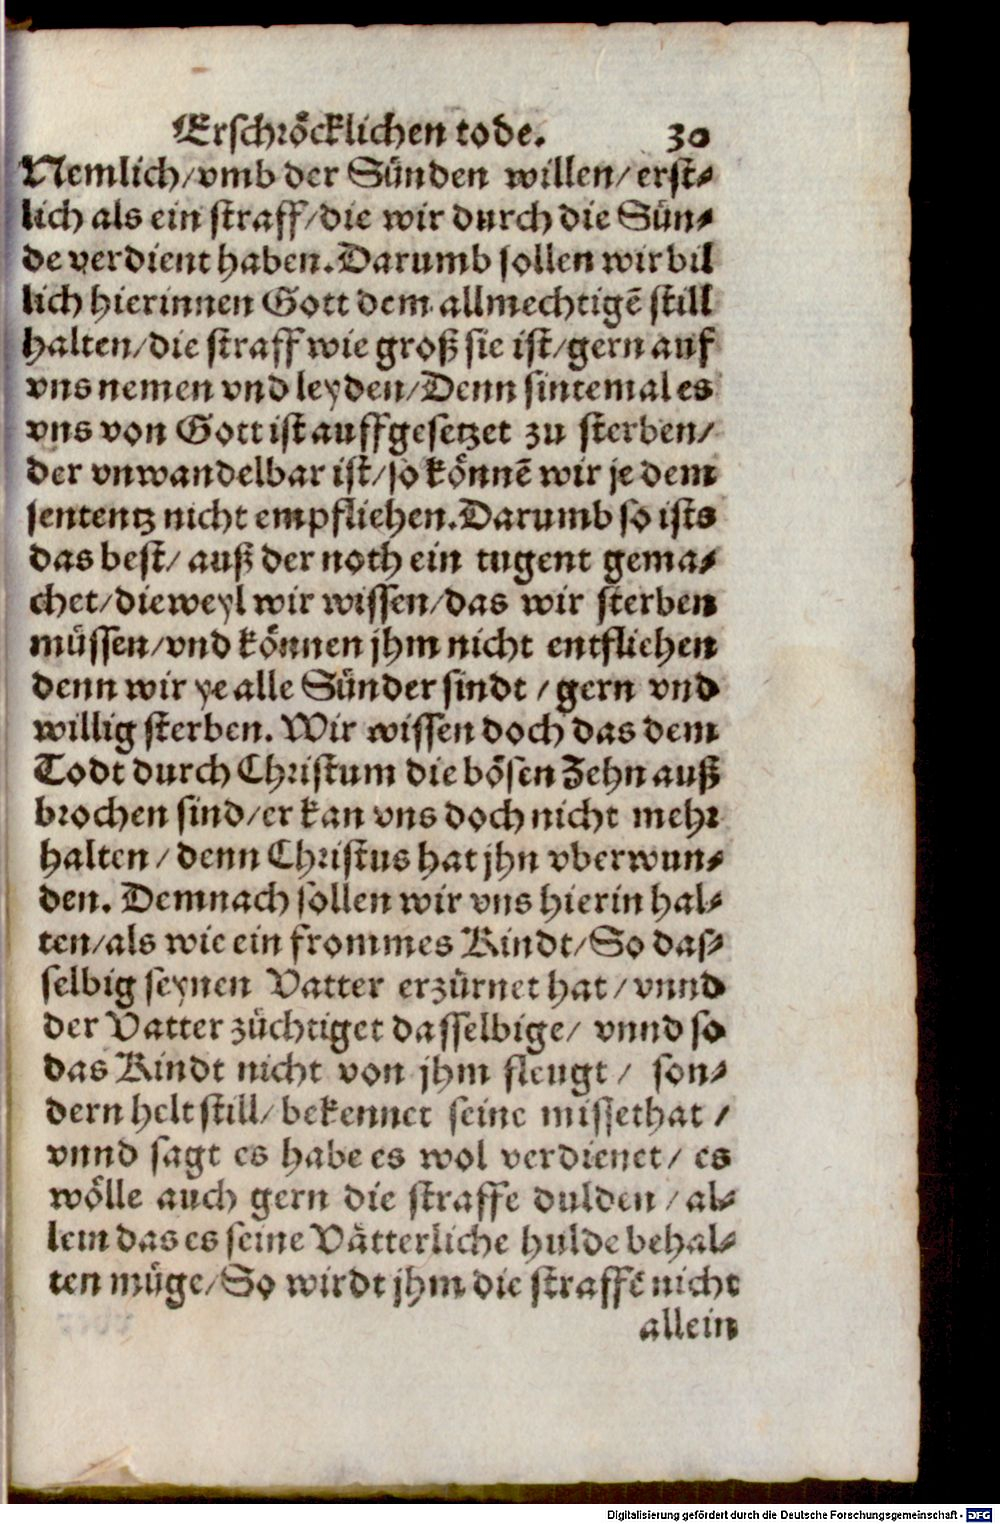 Erschröcklichen tode. 30
Nemlich/vmb der Sünden willen/erst-
lich als ein straff/die wir durch die Sün-
de verdient haben.Darumb sollen wir bil
lich hierinnen Gott dem allmechtigē still
halten/die straff wie groß sie ist/gern auf
vns nemen vnd leyden/Denn sintemal es
vns von Gott ist auffgesetzet zu sterben/
der vnwandelbar ist/so könnē wir je dem
sententz nicht empfliehen.Darumb so ists
das best/ auß der noth ein tugent gema-
chet/dieweyl wir wissen/das wir sterben
müssen/vnd können jhm nicht entfliehen
denn wir ye alle Sünder sindt / gern vnd
willig sterben. Wir wissen doch das dem
Todt durch Christum die bösen Zehn auß
brochen sind/er kan vns doch nicht mehr
halten / denn Christus hat jhn vberwun-
den. Demnach sollen wir vns hierin hal-
ten/als wie ein frommes Kindt/So das-
selbig seynen Vatter erzürnet hat / vnnd
der Vatter züchtiget dasselbige/ vnnd so
das Kindt nicht von jhm fleugt / son-
dern helt still/ bekennet seine missethat /
vnnd sagt es habe es wol verdienet/ es
wölle auch gern die straffe dulden / al-
lein das es seine Vätterliche hulde behal-
ten müge/So wirdt jhm die straffe nicht
allein
Digitalisierung gefördert durch die Deutsche Forschungsgemeinschaft - DFG